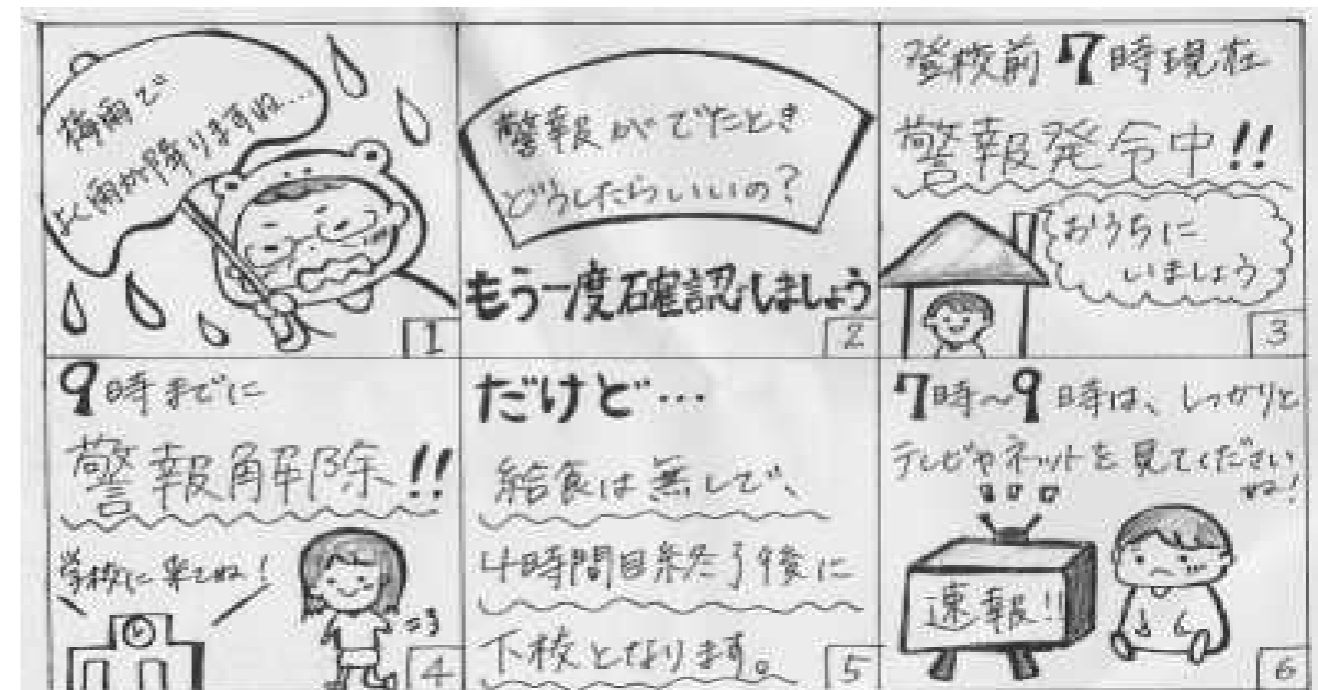 梅雨で
よく雨が降りますね…
1
警報がでたとき
どうしたらいいの?
もう一度確認しましょう
2
登校前7時現在
警報発令中!!
おうちに
いましょう
3
9時までに
警報解除!!
学校に来てね!
4
だけど…
給食は無しで、
4時間目終了後に
下校となります。
5
7時~9時は、しっかりと
テレビやネットを見てください
ね!
速報!!
6